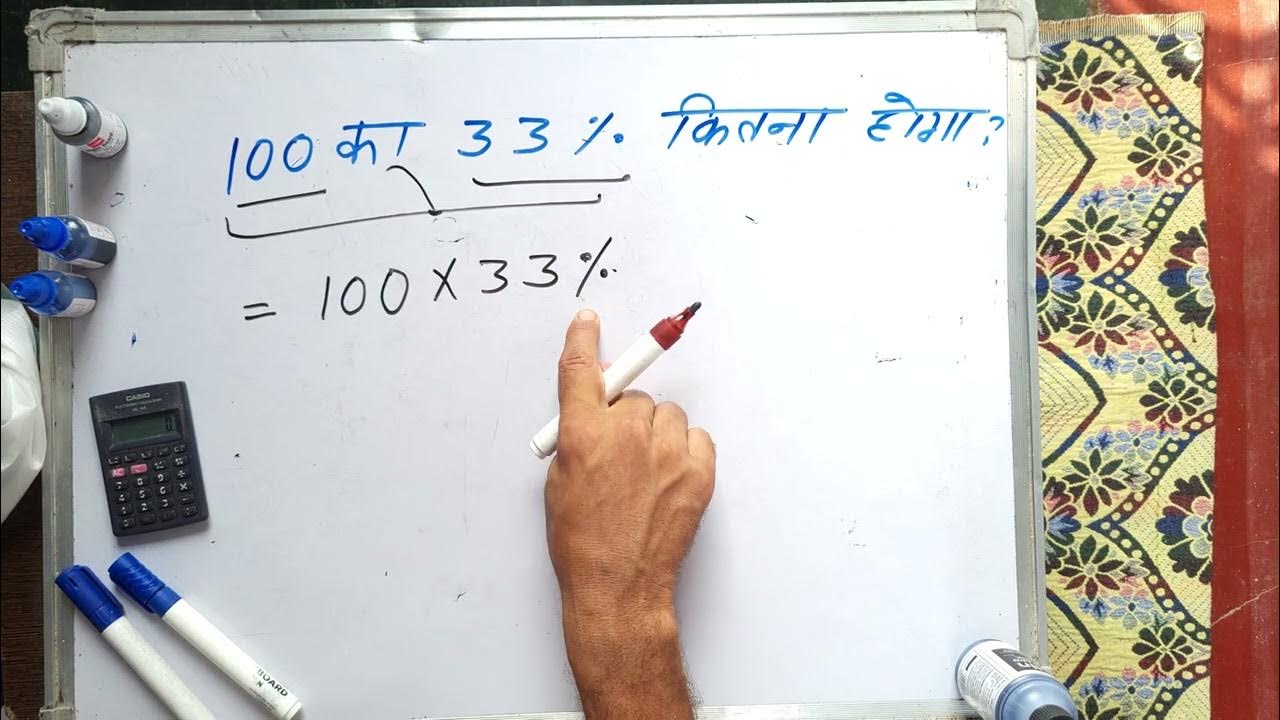 100 का 33% कितना होगा?
= 100 X 33%
CASIO
BOARD